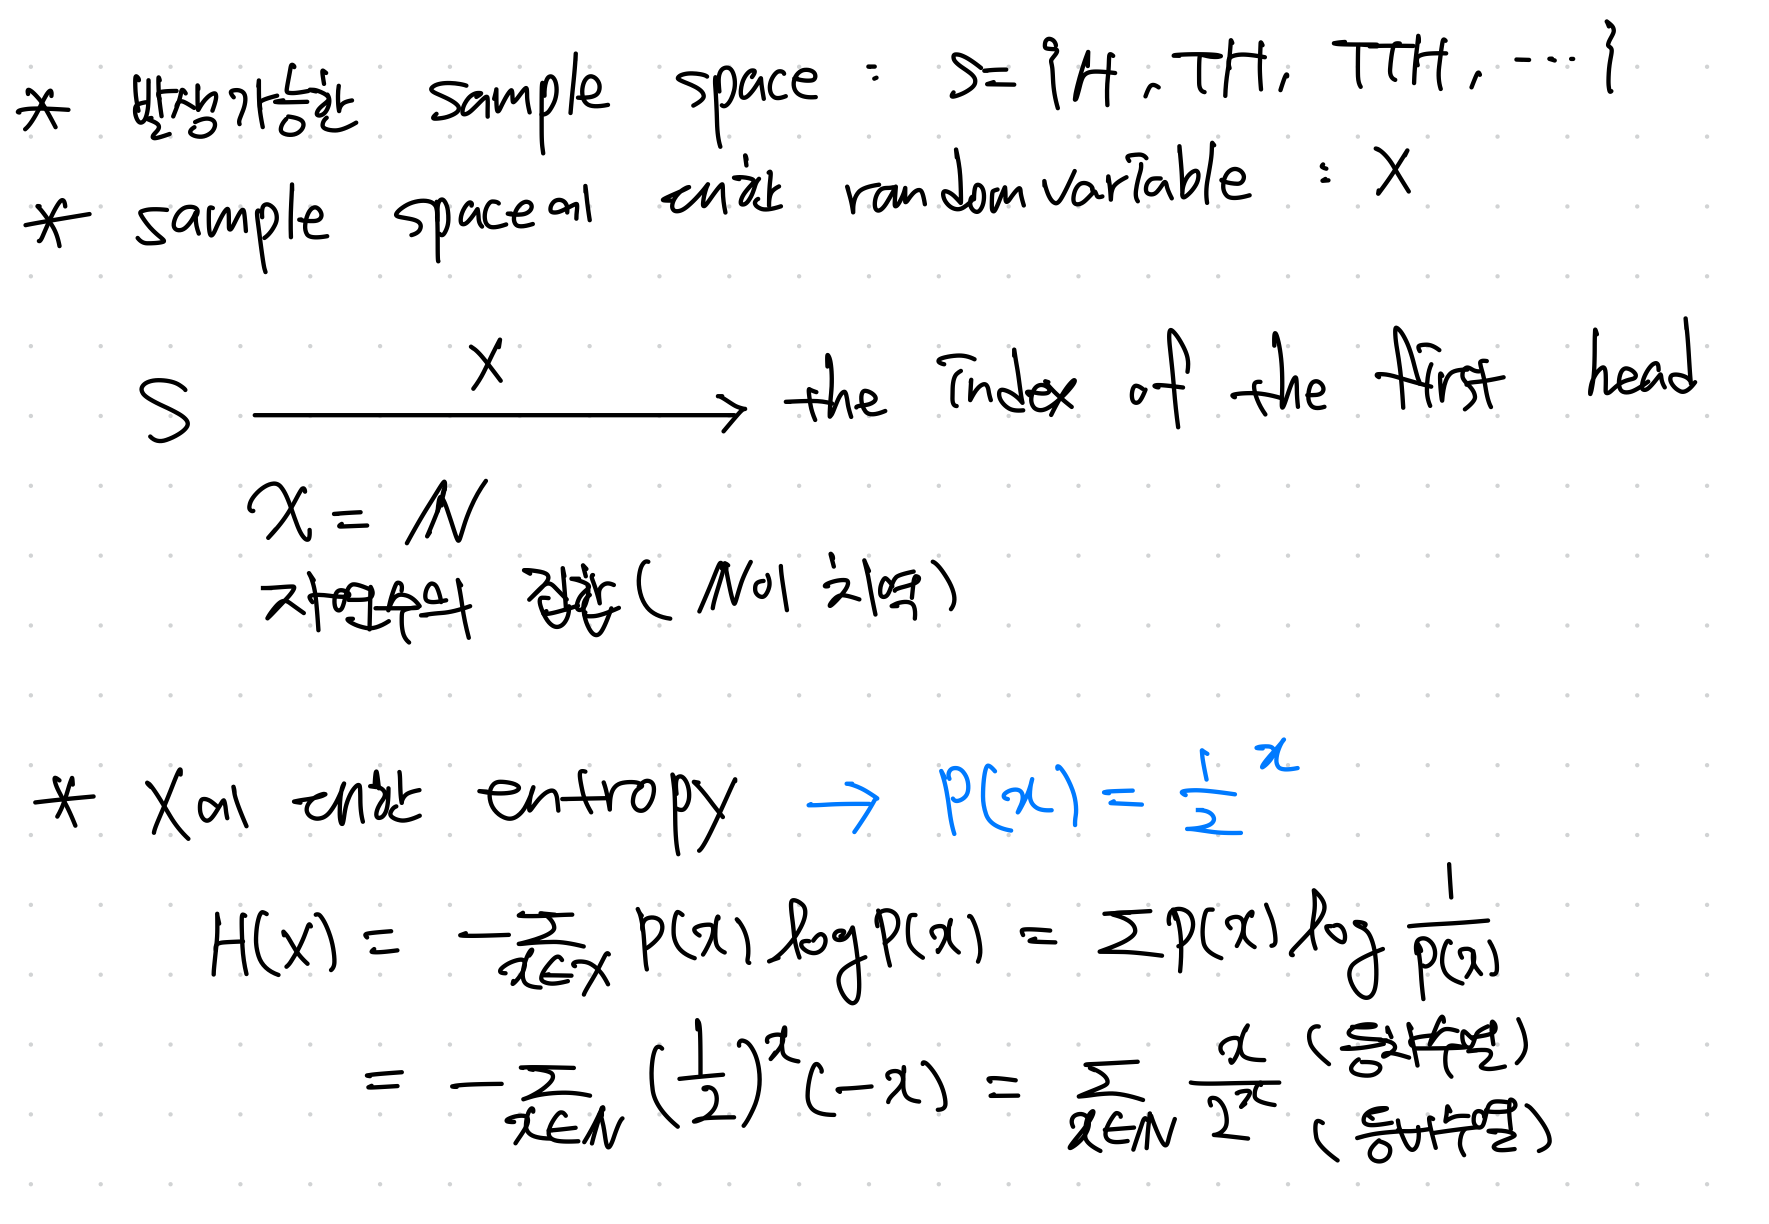 * 발생가능한 sample space : S = {H, TH, TTH, ...}
* sample space에 대한 random variable : X
X
S → the index of the first head
X = ℕ
자연수의 집합 (ℕ이 치역)
* X에 대한 entropy → P(x) = 1/2^x
H(X) = -∑_{x∈X} P(x) log P(x) = ∑ P(x) log 1/P(x)
= -∑_{x∈ℕ} (1/2)^x (-x) = ∑_{x∈ℕ} x/2^x (등차수열)
(등비수열)